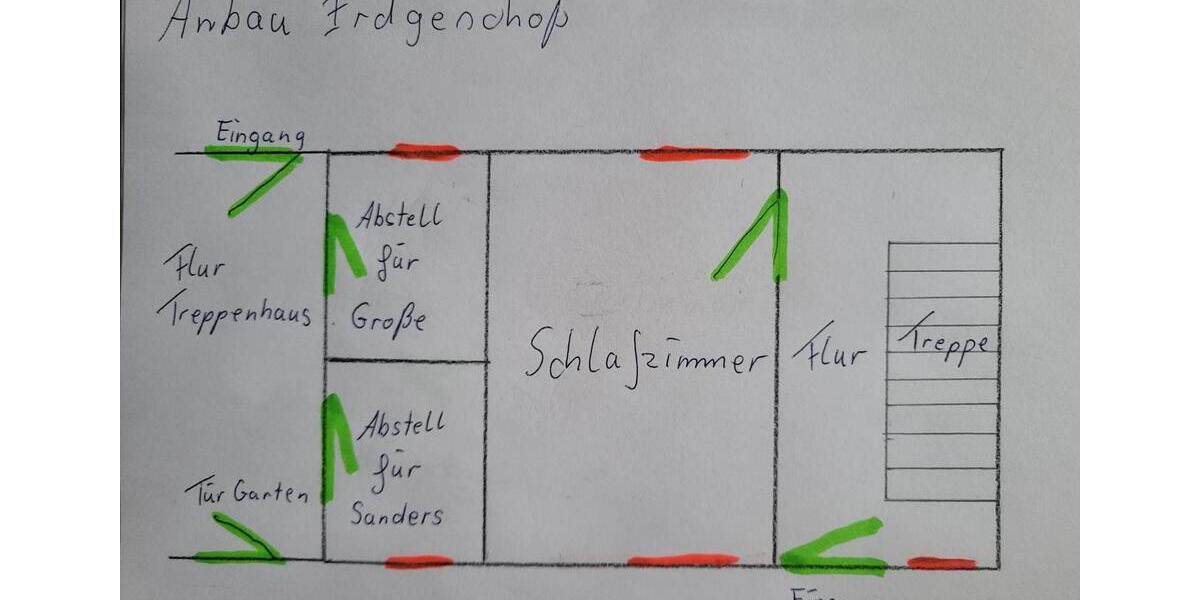 Anbau Erdgenschoß
Eingang
Abstell
für
Große
Flur
Treppenhaus
Schlafzimmer
Flur
Treppe
Abstell
für
Sanders
Tür Garten